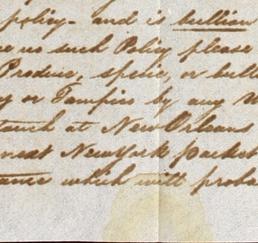 policy - and is bullion
us such Policy please
Produce, specie, or bull
or Tampico by any
touch at New Orleans
next New York packet
which will proba